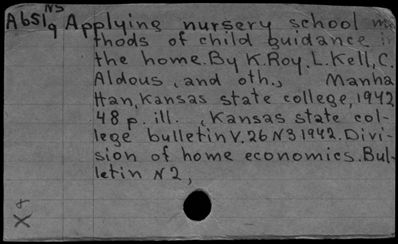 NS
Absl9 Applying nursery school me
thods of child guidance in
the home. By K. Roy, L. Kell, C.
Aldous, and oth., Manha
ttan, Kansas state college, 1942
48 p. ill. , Kansas state col-
lege bulletin V. 26 N3 1942. Divi-
sion of home economics. Bul-
letin N2,
X+